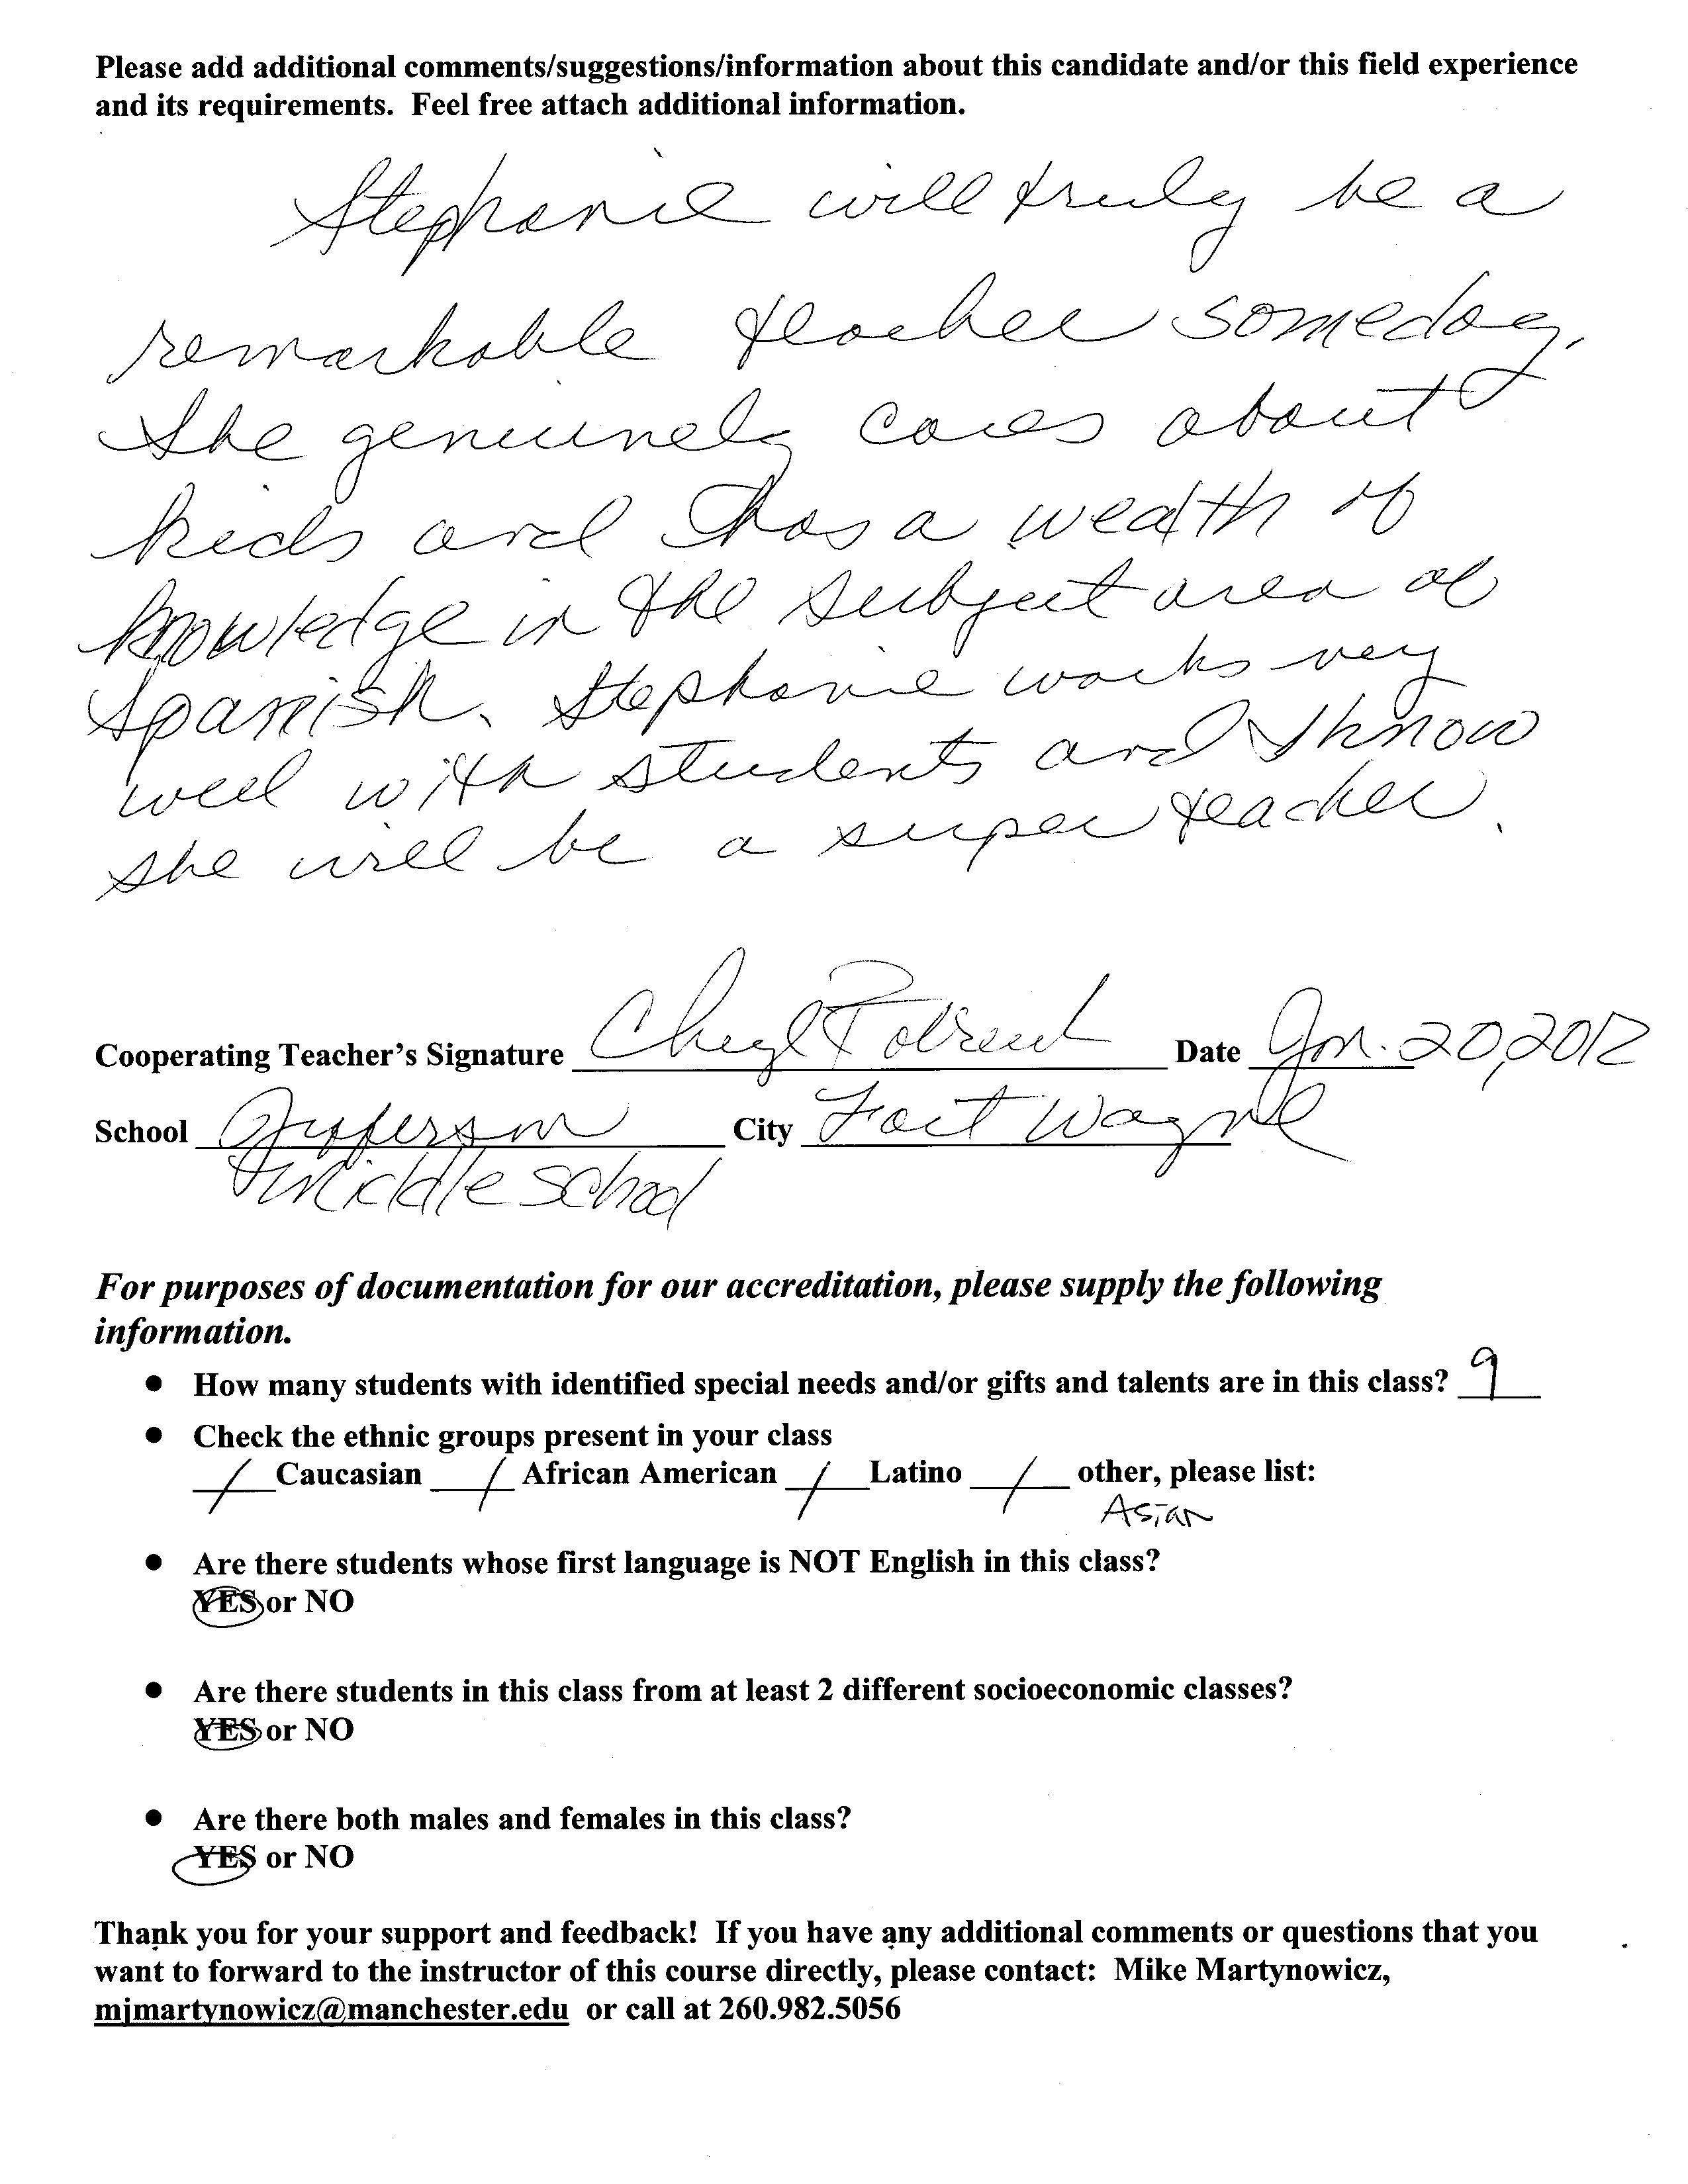 Please add additional comments/suggestions/information about this candidate and/or this field experience
and its requirements. Feel free attach additional information.
Stephanie will truly be a
remarkable teacher someday.
She genuinely cares about
kids and has a wealth of
knowledge in the subject area of
Spanish. Stephanie works very
well with students and I know
she will be a super teacher.
Cooperating Teacher's Signature Cheryl Date Jan. 20, 2012
School Jefferson City Fort Wayne
Middle School
For purposes of documentation for our accreditation, please supply the following
information.
• How many students with identified special needs and/or gifts and talents are in this class? 9
• Check the ethnic groups present in your class
/ Caucasian / African American / Latino / other, please list:
Asian
• Are there students whose first language is NOT English in this class?
YES or NO
• Are there students in this class from at least 2 different socioeconomic classes?
YES or NO
• Are there both males and females in this class?
YES or NO
Thank you for your support and feedback! If you have any additional comments or questions that you
want to forward to the instructor of this course directly, please contact: Mike Martynowicz,
mjmartynowicz@manchester.edu or call at 260.982.5056